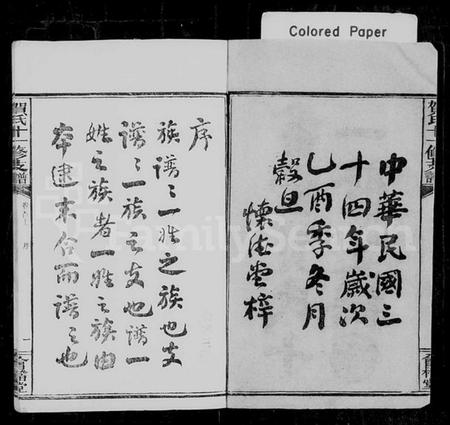 Colored Paper
中華民國三
十四年歲次
乙酉季冬月
穀旦
懷德堂梓
賀氏十一修支譜
序
族譜譜一姓之族也支
譜譜一族之支也譜一
姓之族者一姓之族由
本建末合而譜之也
賀氏十一修支譜
FamilySearch